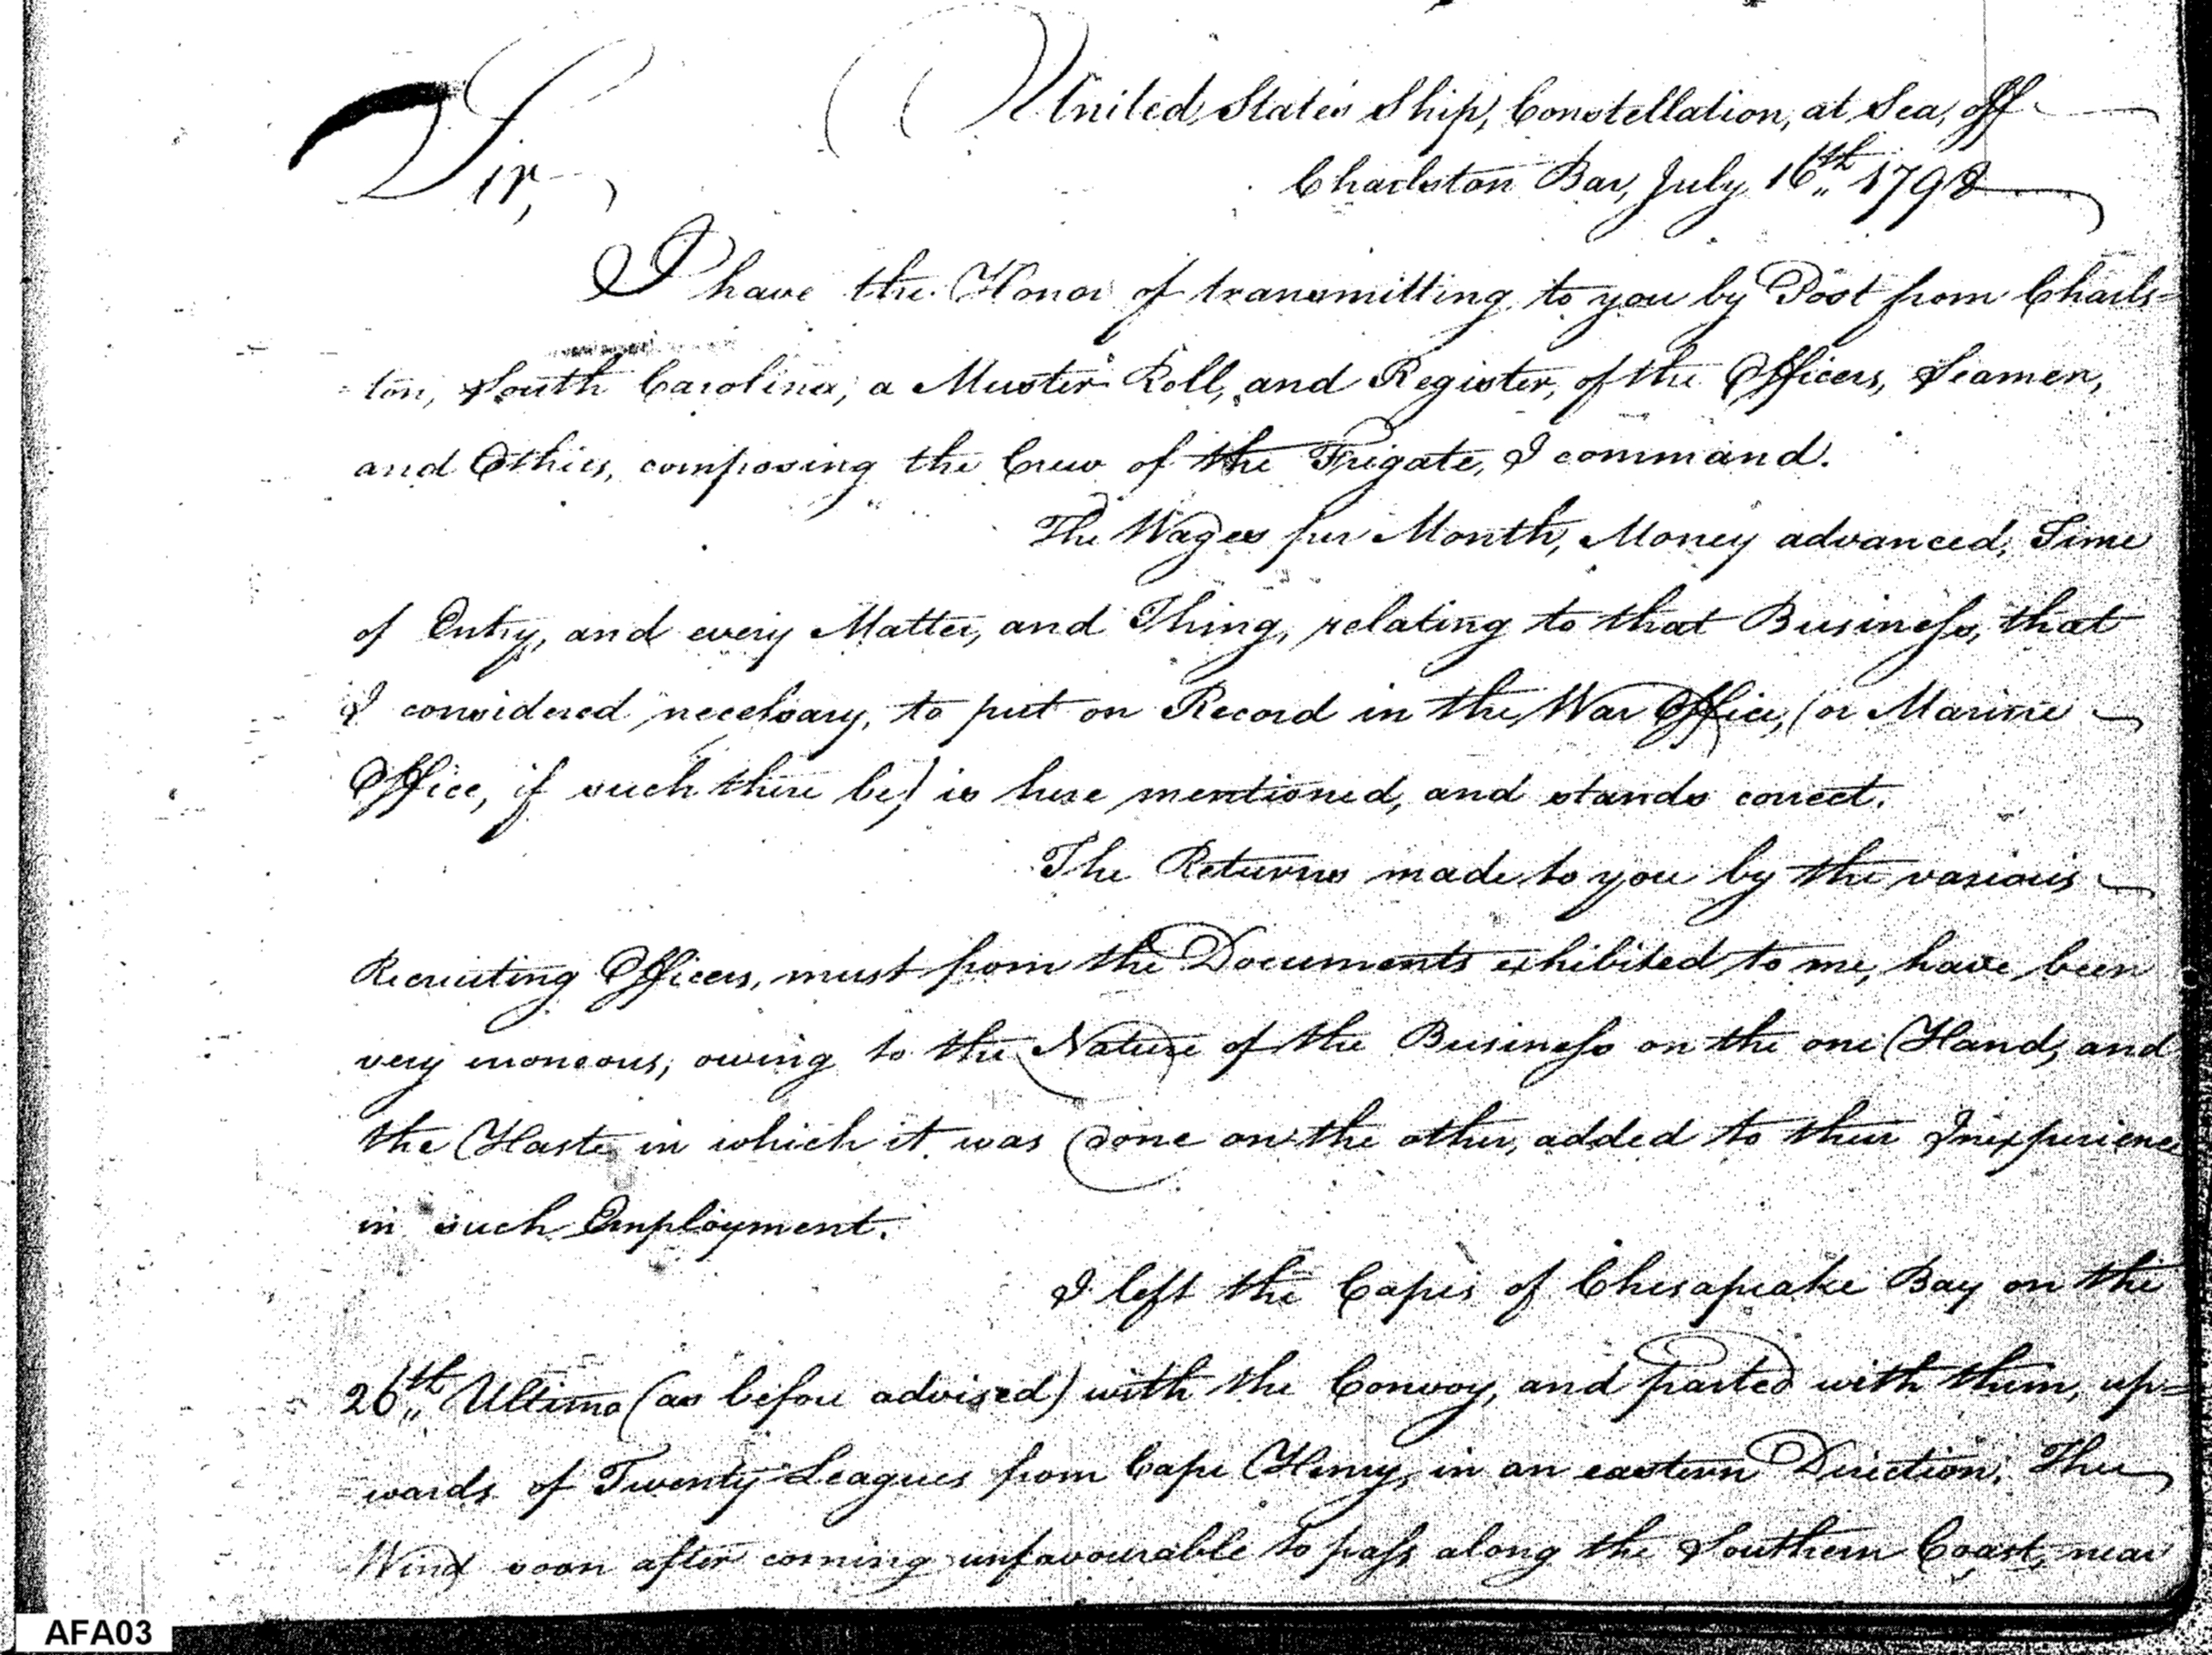 United States Ship, Constellation, at Sea, off
Sir, Charleston Bar, July 16th 1798
I have the Honor of transmitting to you by Post from Charls=
=ton, South Carolina, a Muster Roll, and Register, of the Officers, Seamen,
and Others, composing the Crew of the Frigate, I command.
The Wages per Month, Money advanced, Time
of Entry, and every Matter, and Thing, relating to that Business, that
I considered necessary, to put on Record in the War Office, (or Marine
Office, if such there be) is here mentioned, and stands correct.
The Returns made to you by the various
Recruiting Officers, must from the Documents exhibited to me, have been
very erroneous, owing to the Nature of the Business on the one Hand, and
the Haste in which it was done on the other, added to their Inexperience
in such Employment.
I left the Capes of Chesapeake Bay on the
26th Ultimo (as before advised) with the Convoy, and parted with them, up=
=wards of Twenty Leagues from Cape Henry, in an eastern Direction. The
Wind soon after coming unfavourable to pass along the Southern Coast, near
AFA03